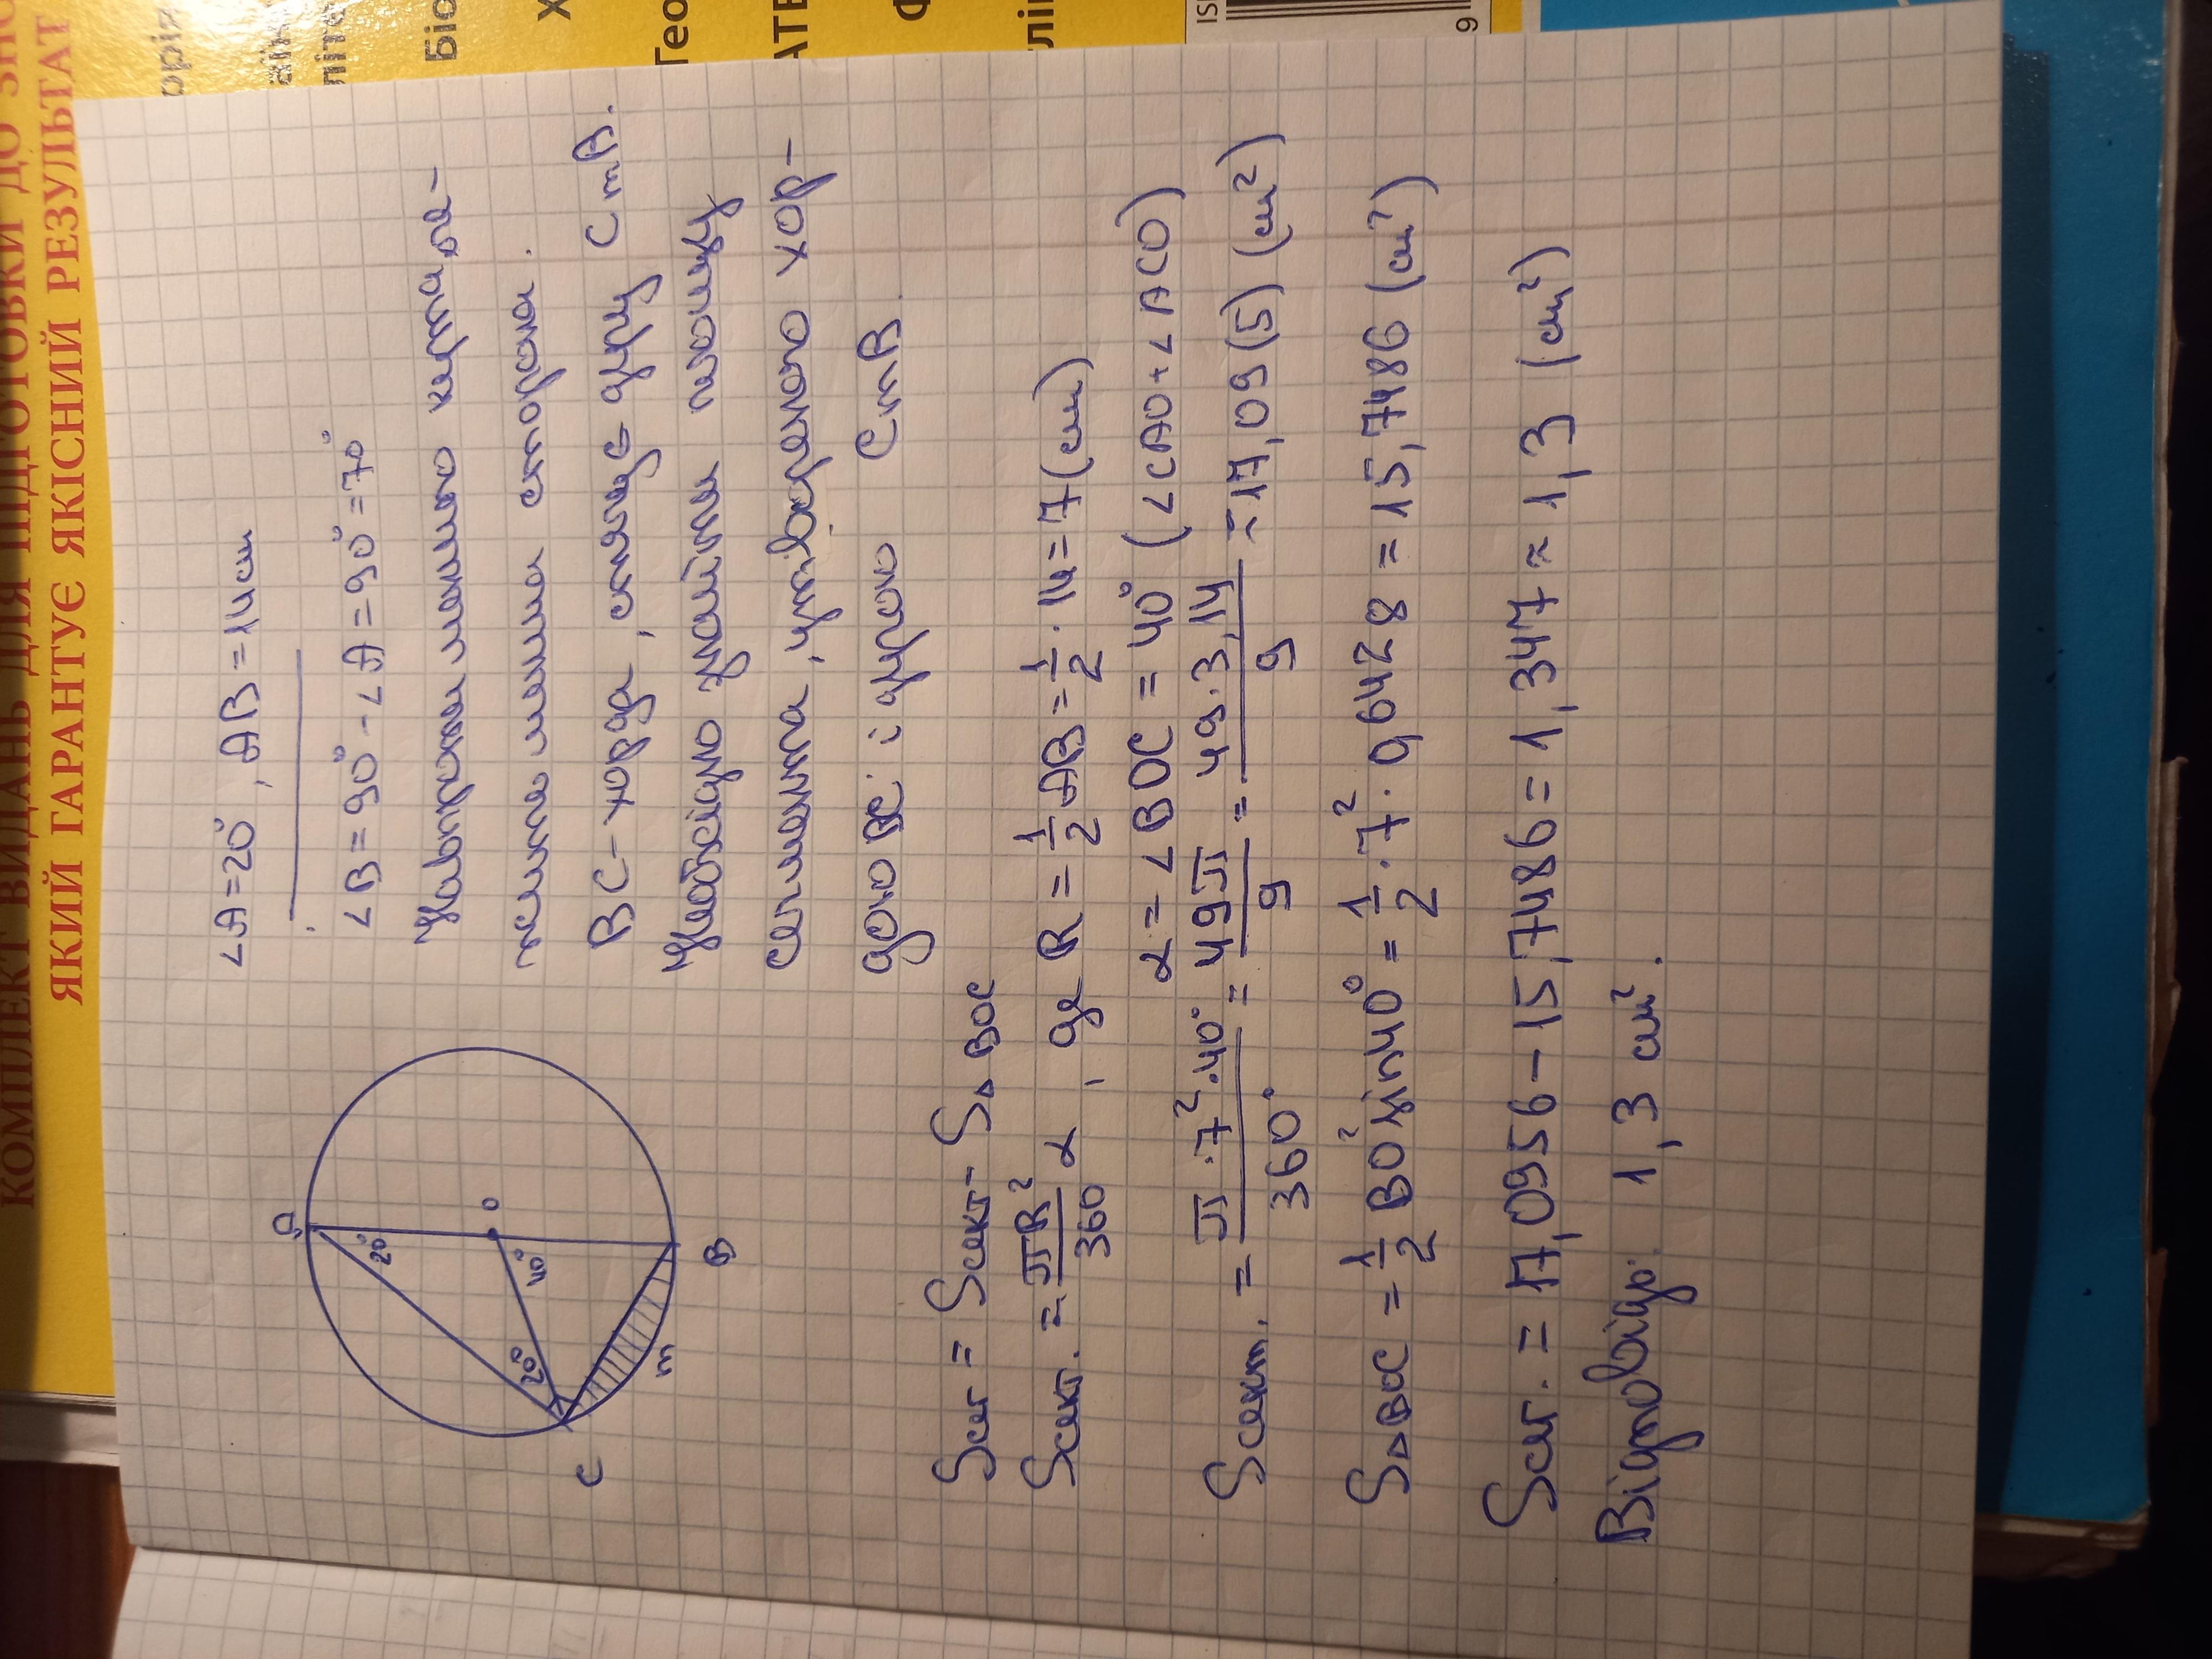 КОМПЛЕКТ ВИДАНЬ ДЛЯ ПІДГОТОВКИ ДО ЗНО
ЯКИЙ ГАРАНТУЄ ЯКІСНИЙ РЕЗУЛЬТАТ
Біо
Х
Гео
Ф
ISB
9
A
20°
O
40°
20°
C
m
B
∠A=20°, AB=14см
∠B=90°-∠A=90°=70°
Навпроти меншого кута ле-
жить менша сторона.
BC-хорда, стягує дугу CmB.
Необхідно знайти площу
сегмента, утвореного хор-
дою BC і дугою CmB
Sсег = Sсект- S△BOC
Sсект. = πR²/360 α, де R = 1/2 AB = 1/2 · 14 = 7(см)
α = ∠BOC = 40° (∠CAO+∠ACO)
Sсект. = π·7²·40°/360° = 49π/9 = 49·3,14/9 = 17,09(5) (см²)
S△BOC = 1/2 BO² sin40° = 1/2 · 7² · 0,6428 = 15,7486 (см²)
Sсег. = 17,0956-15,7486 = 1,347 ≈ 1,3 (см²)
Відповідь: 1,3 см².